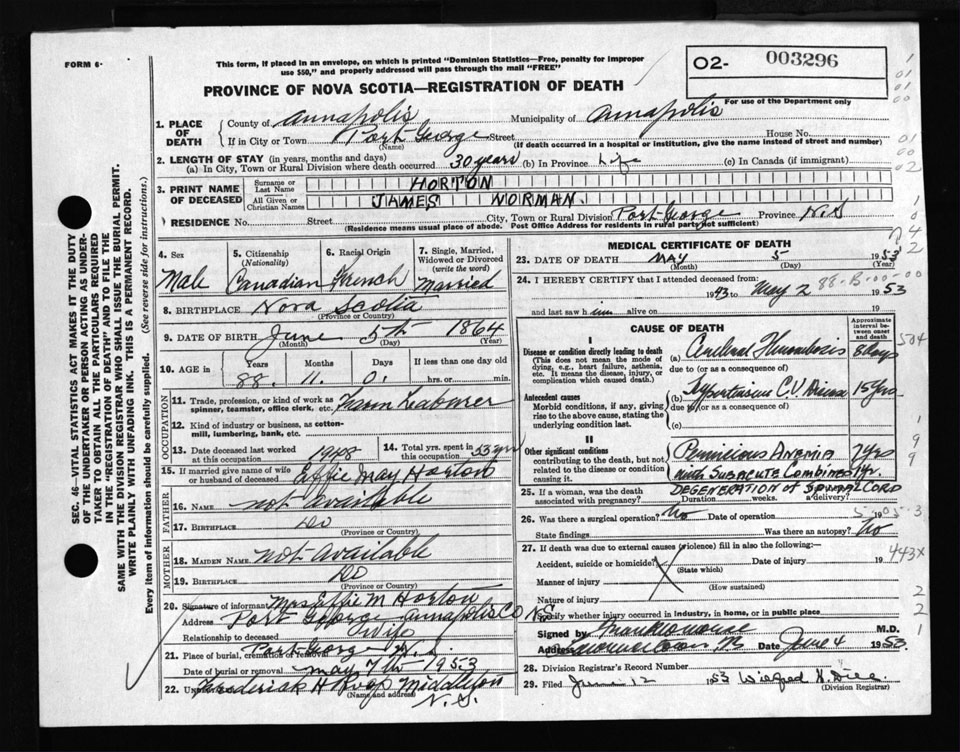 FORM 6.
This form, if placed in an envelope, on which is printed "Dominion Statistics—Free, penalty for improper
use $50," and properly addressed will pass through the mail "FREE"
O2- 003296
For use of the Department only
PROVINCE OF NOVA SCOTIA—REGISTRATION OF DEATH
SEC. 46—VITAL STATISTICS ACT MAKES IT THE DUTY
OF THE UNDERTAKER OR PERSON ACTING AS UNDER-
TAKER TO OBTAIN ALL THE PARTICULARS REQUIRED
IN THE "REGISTRATION OF DEATH" AND TO FILE THE
SAME WITH THE DIVISION REGISTRAR WHO SHALL ISSUE THE BURIAL PERMIT.
WRITE PLAINLY WITH UNFADING INK. THIS IS A PERMANENT RECORD.
Every item of information should be carefully supplied. (See reverse side for instructions.)
1. PLACE OF DEATH
County of Annapolis Municipality of Annapolis
If in City or Town Port George Street House No.
(Name) (If death occurred in a hospital or institution, give the name instead of street and number)
2. LENGTH OF STAY (in years, months and days)
(a) In City, Town or Rural Division where death occurred 30 years (b) In Province Life (c) In Canada (if immigrant)
3. PRINT NAME OF DECEASED
Surname or Last Name HORTON
All Given or Christian Names JAMES NORMAN
RESIDENCE No. Street. City, Town or Rural Division Port George Province N.S
(Residence means usual place of abode. Post Office Address for residents in rural parts not sufficient)
4. Sex Male
5. Citizenship (Nationality) Canadian
6. Racial Origin French
7. Single, Married, Widowed or Divorced (write the word) Married
8. BIRTHPLACE Nova Scotia
(Province or Country)
9. DATE OF BIRTH June 5th 1864
(Month) (Day) (Year)
10. AGE in Years 88 Months 11 Days 0 If less than one day old hrs. or min.
OCCUPATION
11. Trade, profession, or kind of work as spinner, teamster, office clerk, etc. Farm Labourer
12. Kind of industry or business, as cotton-mill, lumbering, bank, etc.
13. Date deceased last worked at this occupation 1948
14. Total yrs. spent in this occupation 53 yrs
15. If married give name of wife or husband of deceased Effie May Horton
FATHER
16. Name not available
17. Birthplace do
MOTHER
18. Maiden Name not available
19. Birthplace do
(Province or Country)
20. Signature of informant Mrs Effie M Horton
Address Port George Annapolis CO N.S.
Relationship to deceased Wife
21. Place of burial, cremation or removal Port George N.S.
Date of burial or removal may 7th 1953
22. Undertaker Middleton
(Name and address) N.S.
MEDICAL CERTIFICATE OF DEATH
23. DATE OF DEATH MAY 5 1953
(Month) (Day) (Year)
24. I HEREBY CERTIFY that I attended deceased from:
1943 to May 2 1953
88-B-00-00
and last saw him alive on 19
CAUSE OF DEATH
Approximate interval between onset and death
I
Disease or condition directly leading to death
(This does not mean the mode of dying, e.g., heart failure, asthenia, etc. It means the disease, injury, or complication which caused death.)
(a) Cerebral Thrombosis 8 days
due to (or as a consequence of)
Antecedent causes
Morbid conditions, if any, giving rise to the above cause, stating the underlying condition last.
(b) Hypertensive C.V. Disease 15 yrs
due to (or as a consequence of)
(c)
II
Other significant conditions
contributing to the death, but not related to the disease or condition causing it.
Pernicious Anemia 7 yrs
with SUBACUTE COMBINED 1 yr.
DEGENERATION OF SPINAL CORD
25. If a woman, was the death associated with pregnancy? Duration weeks. a delivery?
26. Was there a surgical operation? No Date of operation 19
State findings Was there an autopsy? No
27. If death was due to external causes (violence) fill in also the following:—
Accident, suicide or homicide? Date of injury 19
(State which)
Manner of injury
(How sustained)
Nature of injury
Specify whether injury occurred in industry, in home, or in public place
Signed by M.D.
Address Date June 4 1953.
28. Division Registrar's Record Number
29. Filed June 12 1953
(Division Registrar)
504
443X